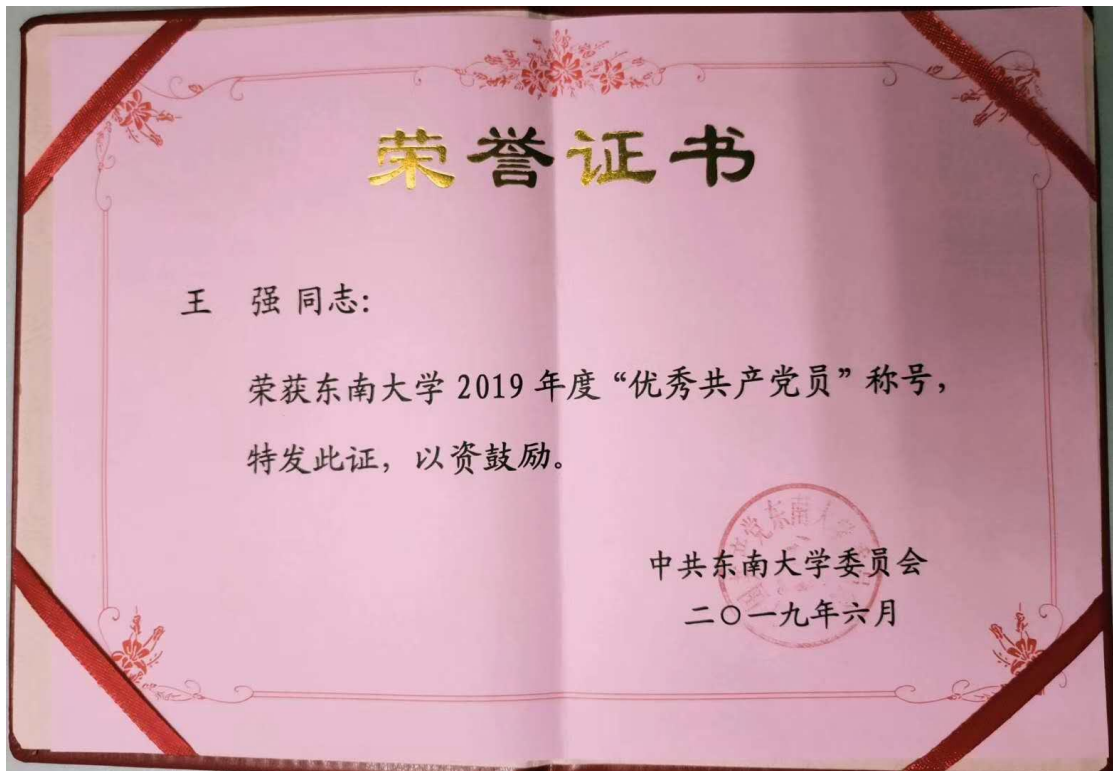 荣誉证书
王 强 同志：
荣获东南大学 2019 年度“优秀共产党员”称号，
特发此证，以资鼓励。
中共东南大学委员会
二〇一九年六月